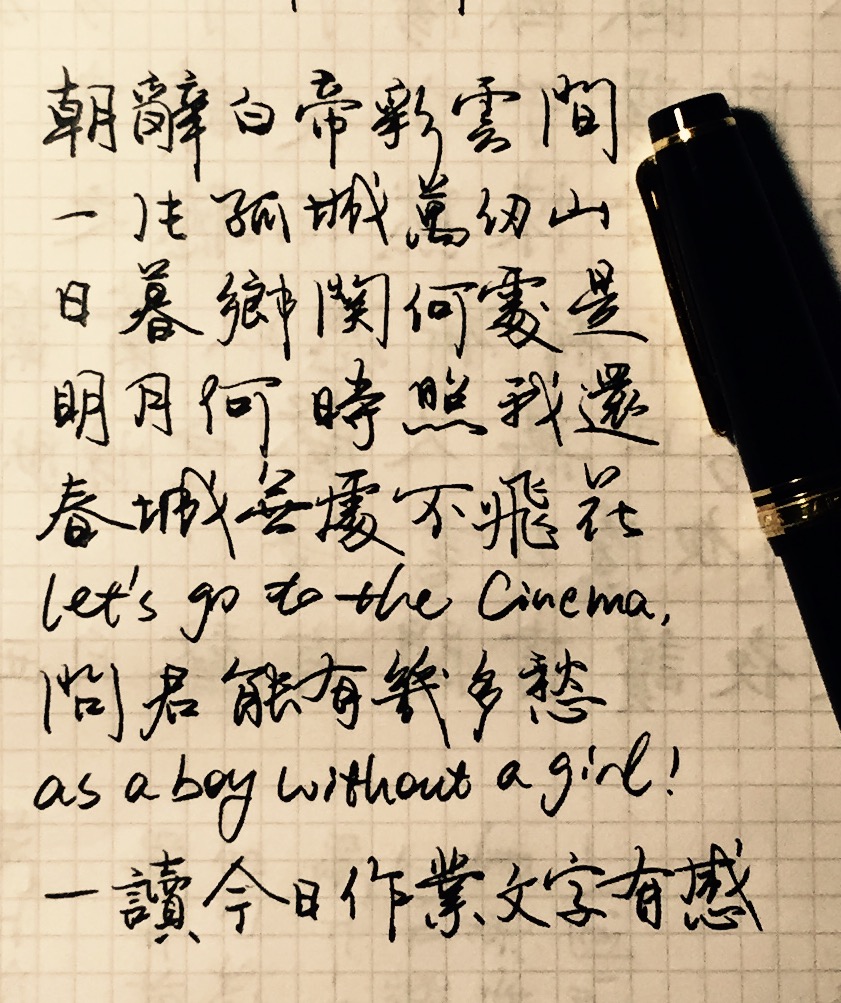 朝辭白帝彩雲間
一片孤城萬仞山
日暮鄉關何處是
明月何時照我還
春城無處不飛花
let's go to the cinema,
問君能有幾多愁
as a boy without a girl!
一讀今日作業文字有感